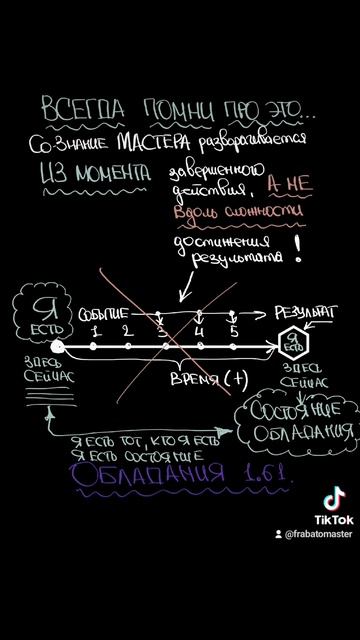 ВСЕГДА ПОМНИ ПРО ЭТО...
СО-ЗНАНИЕ МАСТЕРА разворачивается
ИЗ МОМЕНТА завершенного
действия, А НЕ
Вдоль сложности
достижения
результата!
Я ЕСТЬ
СОБЫТИЕ
РЕЗУЛЬТАТ
1 2 3 4 5
Я ЕСТЬ
ЗДЕСЬ
СЕЙЧАС
ВРЕМЯ (+)
ЗДЕСЬ
СЕЙЧАС
СОСТОЯНИЕ
ОБЛАДАНИЯ
Я ЕСТЬ ТОТ, КТО Я ЕСТЬ
Я ЕСТЬ СОСТОЯНИЕ
ОБЛАДАНИЯ 1.61.
TikTok
@frabatomaster